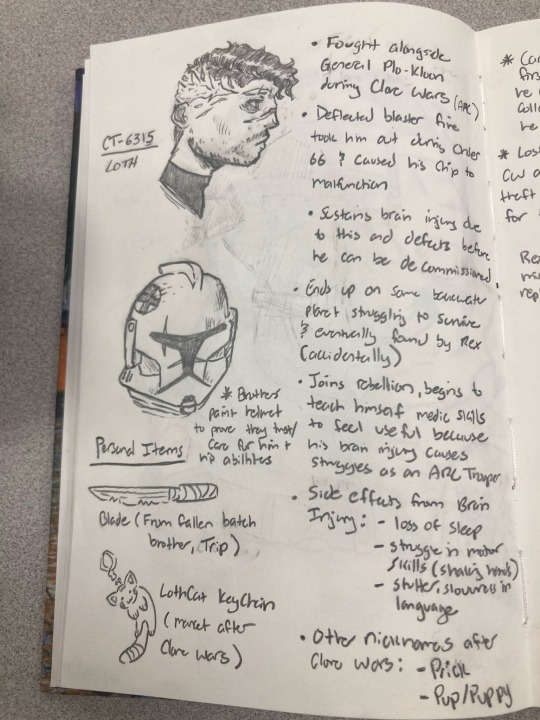 CT-6315
LOTH
• Fought alongside
General Plo-Kloon
during Clone Wars (ARC)
• Deflected blaster fire
took him out during Order
66 & caused his chip to
malfunction
• Sustains brain injury due
to this and defects before
he can be decommissioned.
• Ends up on some backwater
planet struggling to survive
& eventually found by Rex
(accidentally)
• Joins rebellion, begins to
teach himself medic skills
to feel useful because
his brain injury causes
struggles as an ARC Trooper
• Side effects from Brain
Injury: - loss of sleep
- struggle in motor
skills (shaking hands)
- stutter, slowness in
language
• Other nicknames after
Clone Wars: - Prick
- Pup/Puppy
* Brothers
paint helmet
to prove they trust/
care for him &
his abilities
Personal Items
Blade (From fallen batch
brother, Trip)
LothCat KeyChain
(market after
Clone Wars)
*
he
he
* Lost
CW
theft
for